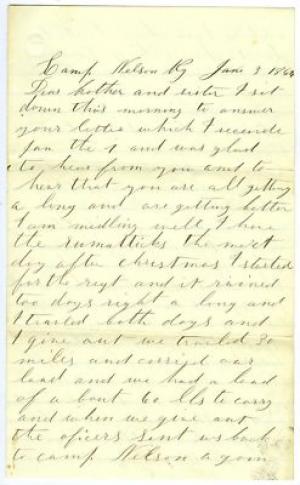 Camp Nelson Ky Jan 3 1864
Dear brother and sister I set
down this morning to answer
your letter which I receivde
Jan the 1 and was glad
to hear from you and to
hear that you are all getting
a long and are getting better
I am medling well I have
the rumatticks the next
day after christmas I started
for the regt and it rained
too days right a long and
I travled both days and
I give out we travled 30
miles and carryed our
load and we had a load
of a bout 60 lbs to carry
and when we give out
the oficers sent us back
to camp Nelson a gain